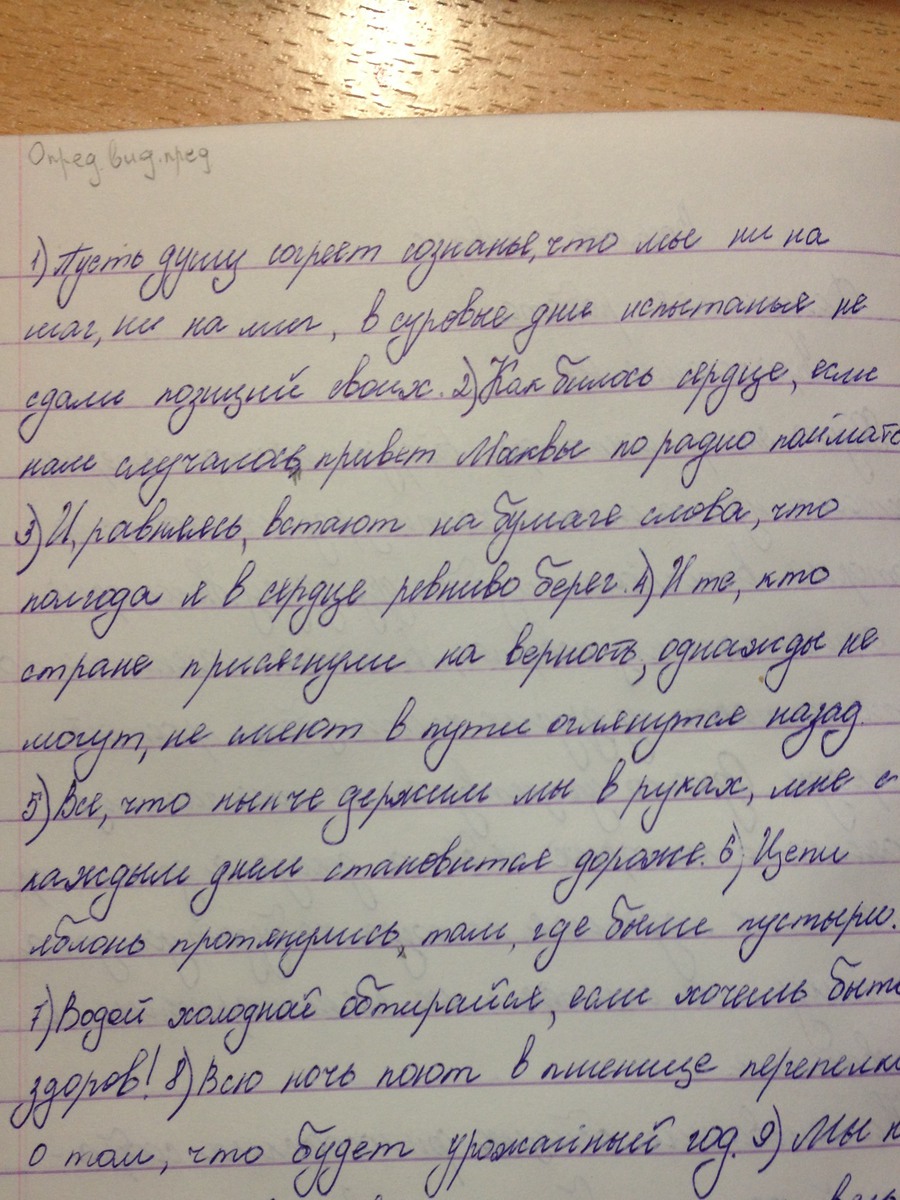 Опред. вид. пред
1) Пусть душу согреет сознанье, что мы ни на
шаг, ни на миг, в суровые дни испытанья не
сдали позиций своих. 2) Как билось сердце, если
нам случалось, привет Москвы по радио поймать
3) И, равняясь, встают на бумаге слова, что
полгода я в сердце ревниво берег. 4) И те, кто
стране присягнули на верность, однажды не
могут, не смеют в пути оглянутся назад
5) Все, что нынче держим мы в руках, мне с
каждым днем становится дороже. 6) Цепи
яблонь протянулись, там, где были пустыри.
7) Водой холодной обтирайся, если хочешь быть
здоров! 8) Всю ночь поют в пшенице перепелки
о том, что будет урожайный год. 9) Мы